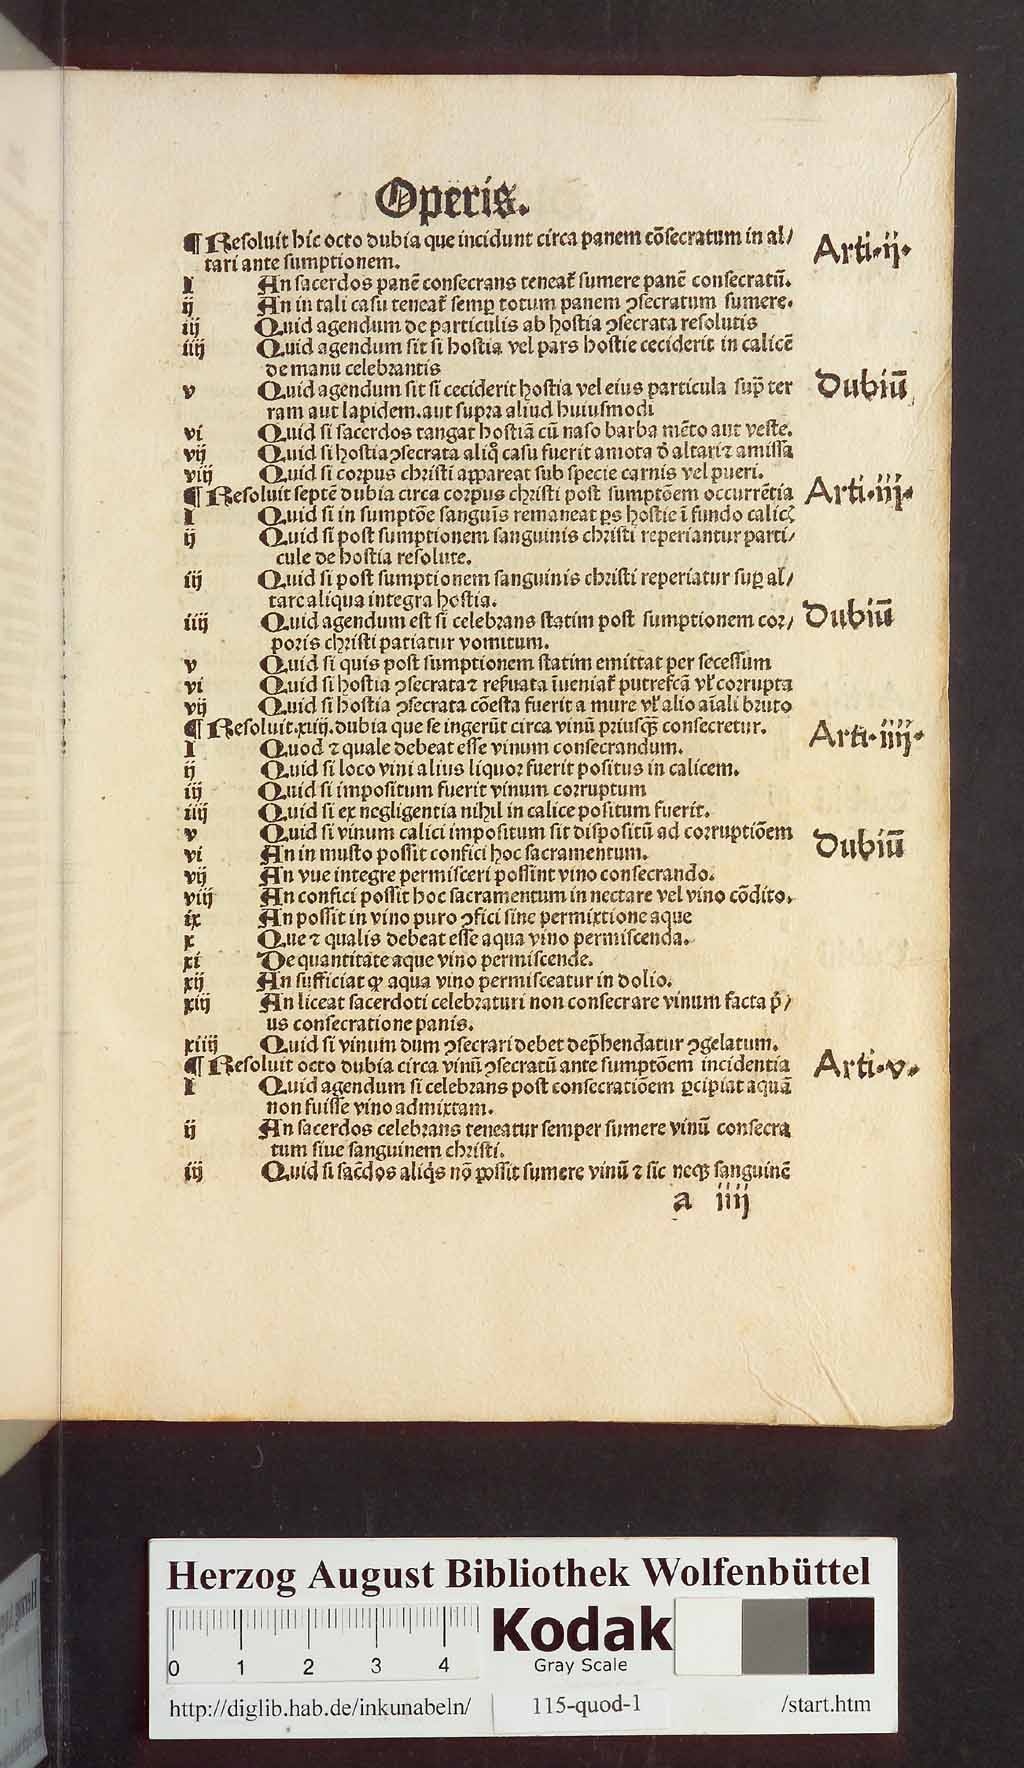 Operis.
¶ Resoluit hic octo dubia que incidunt circa panem cōsecratum in al/ Arti·ij·
tari ante sumptionem.
I An sacerdos panē consecrans teneat̄ sumere panē consecratū.
ij An in tali casu teneat̄ semꝑ totum panem ꝯsecratum sumere.
iij Quid agendum de particulis ab hostia ꝯsecrata resolutis
iiij Quid agendum sit si hostia vel pars hostie ceciderit in calicē
de manu celebrantis
v Quid agendum sit si ceciderit hostia vel eius particula suꝑ ter Dubiū
ram aut lapidem.aut supra aliud huiusmodi
vi Quid si sacerdos tangat hostiā cū naso barba mēto aut veste.
vij Quid si hostia ꝯsecrata aliq̊ casu fuerit amota d̄ altari ⁊ amissa
viij Quid si corpus christi appareat sub specie carnis vel pueri.
¶ Resoluit septē dubia circa corpus christi post sumptōem occurrētia Arti·iij·
I Quid si in sumptōe sanguīs remaneat ꝑs hostie ī fundo calicꝭ
ij Quid si post sumptionem sanguinis christi reperiantur parti/
cule de hostia resolute.
iij Quid si post sumptionem sanguinis christi reperiatur suꝑ al/
tare aliqua integra hostia.
iiij Quid agendum est si celebrans statim post sumptionem cor/ Dubiū
poris christi patiatur vomitum.
v Quid si quis post sumptionem statim emittat per secessum
vi Quid si hostia ꝯsecrata ⁊ res̄uata īueniat̄ putrefcā vl̓ corrupta
vij Quid si hostia ꝯsecrata cōesta fuerit a mure vl̓ alio aīali bruto
¶ Resoluit.xiiij.dubia que se ingerūt circa vinū priusqꝫ consecretur. Arti·iiij·
I Quod ⁊ quale debeat esse vinum consecrandum.
ij Quid si loco vini alius liquor fuerit positus in calicem.
iij Quid si impositum fuerit vinum corruptum
iiij Quid si ex negligentia nihil in calice positum fuerit.
v Quid si vinum calici impositum sit dispositū ad corruptiōem Dubiū
vi An in musto possit confici hoc sacramentum.
vij An vue integre permisceri possint vino consecrando.
viij An confici possit hoc sacramentum in nectare vel vino cōdito.
ix An possit in vino puro ꝯfici sine permixtione aque
x Que ⁊ qualis debeat esse aqua vino permiscenda.
xi De quantitate aque vino permiscende.
xij An sufficiat ꝙ aqua vino permisceatur in dolio.
xiij An liceat sacerdoti celebraturi non consecrare vinum facta p̄/
us consecratione panis.
xiiij Quid si vinum dum ꝯsecrari debet dep̄hendatur ꝯgelatum.
¶ Resoluit octo dubia circa vinū ꝯsecratū ante sumptōem incidentia Arti·v·
I Quid agendum si celebrans post consecratiōem ꝑcipiat aquā
non fuisse vino admixtam.
ij An sacerdos celebrans teneatur semper sumere vinū consecra
tum siue sanguinem christi.
iij Quid si sac̄dos aliq̇s nō possit sumere vinū ⁊ sic neqꝫ sanguinē
a iiij
Herzog August Bibliothek Wolfenbüttel
0 1 2 3 4
Kodak
Gray Scale
http://diglib.hab.de/inkunabeln/ 115-quod-1 /start.htm